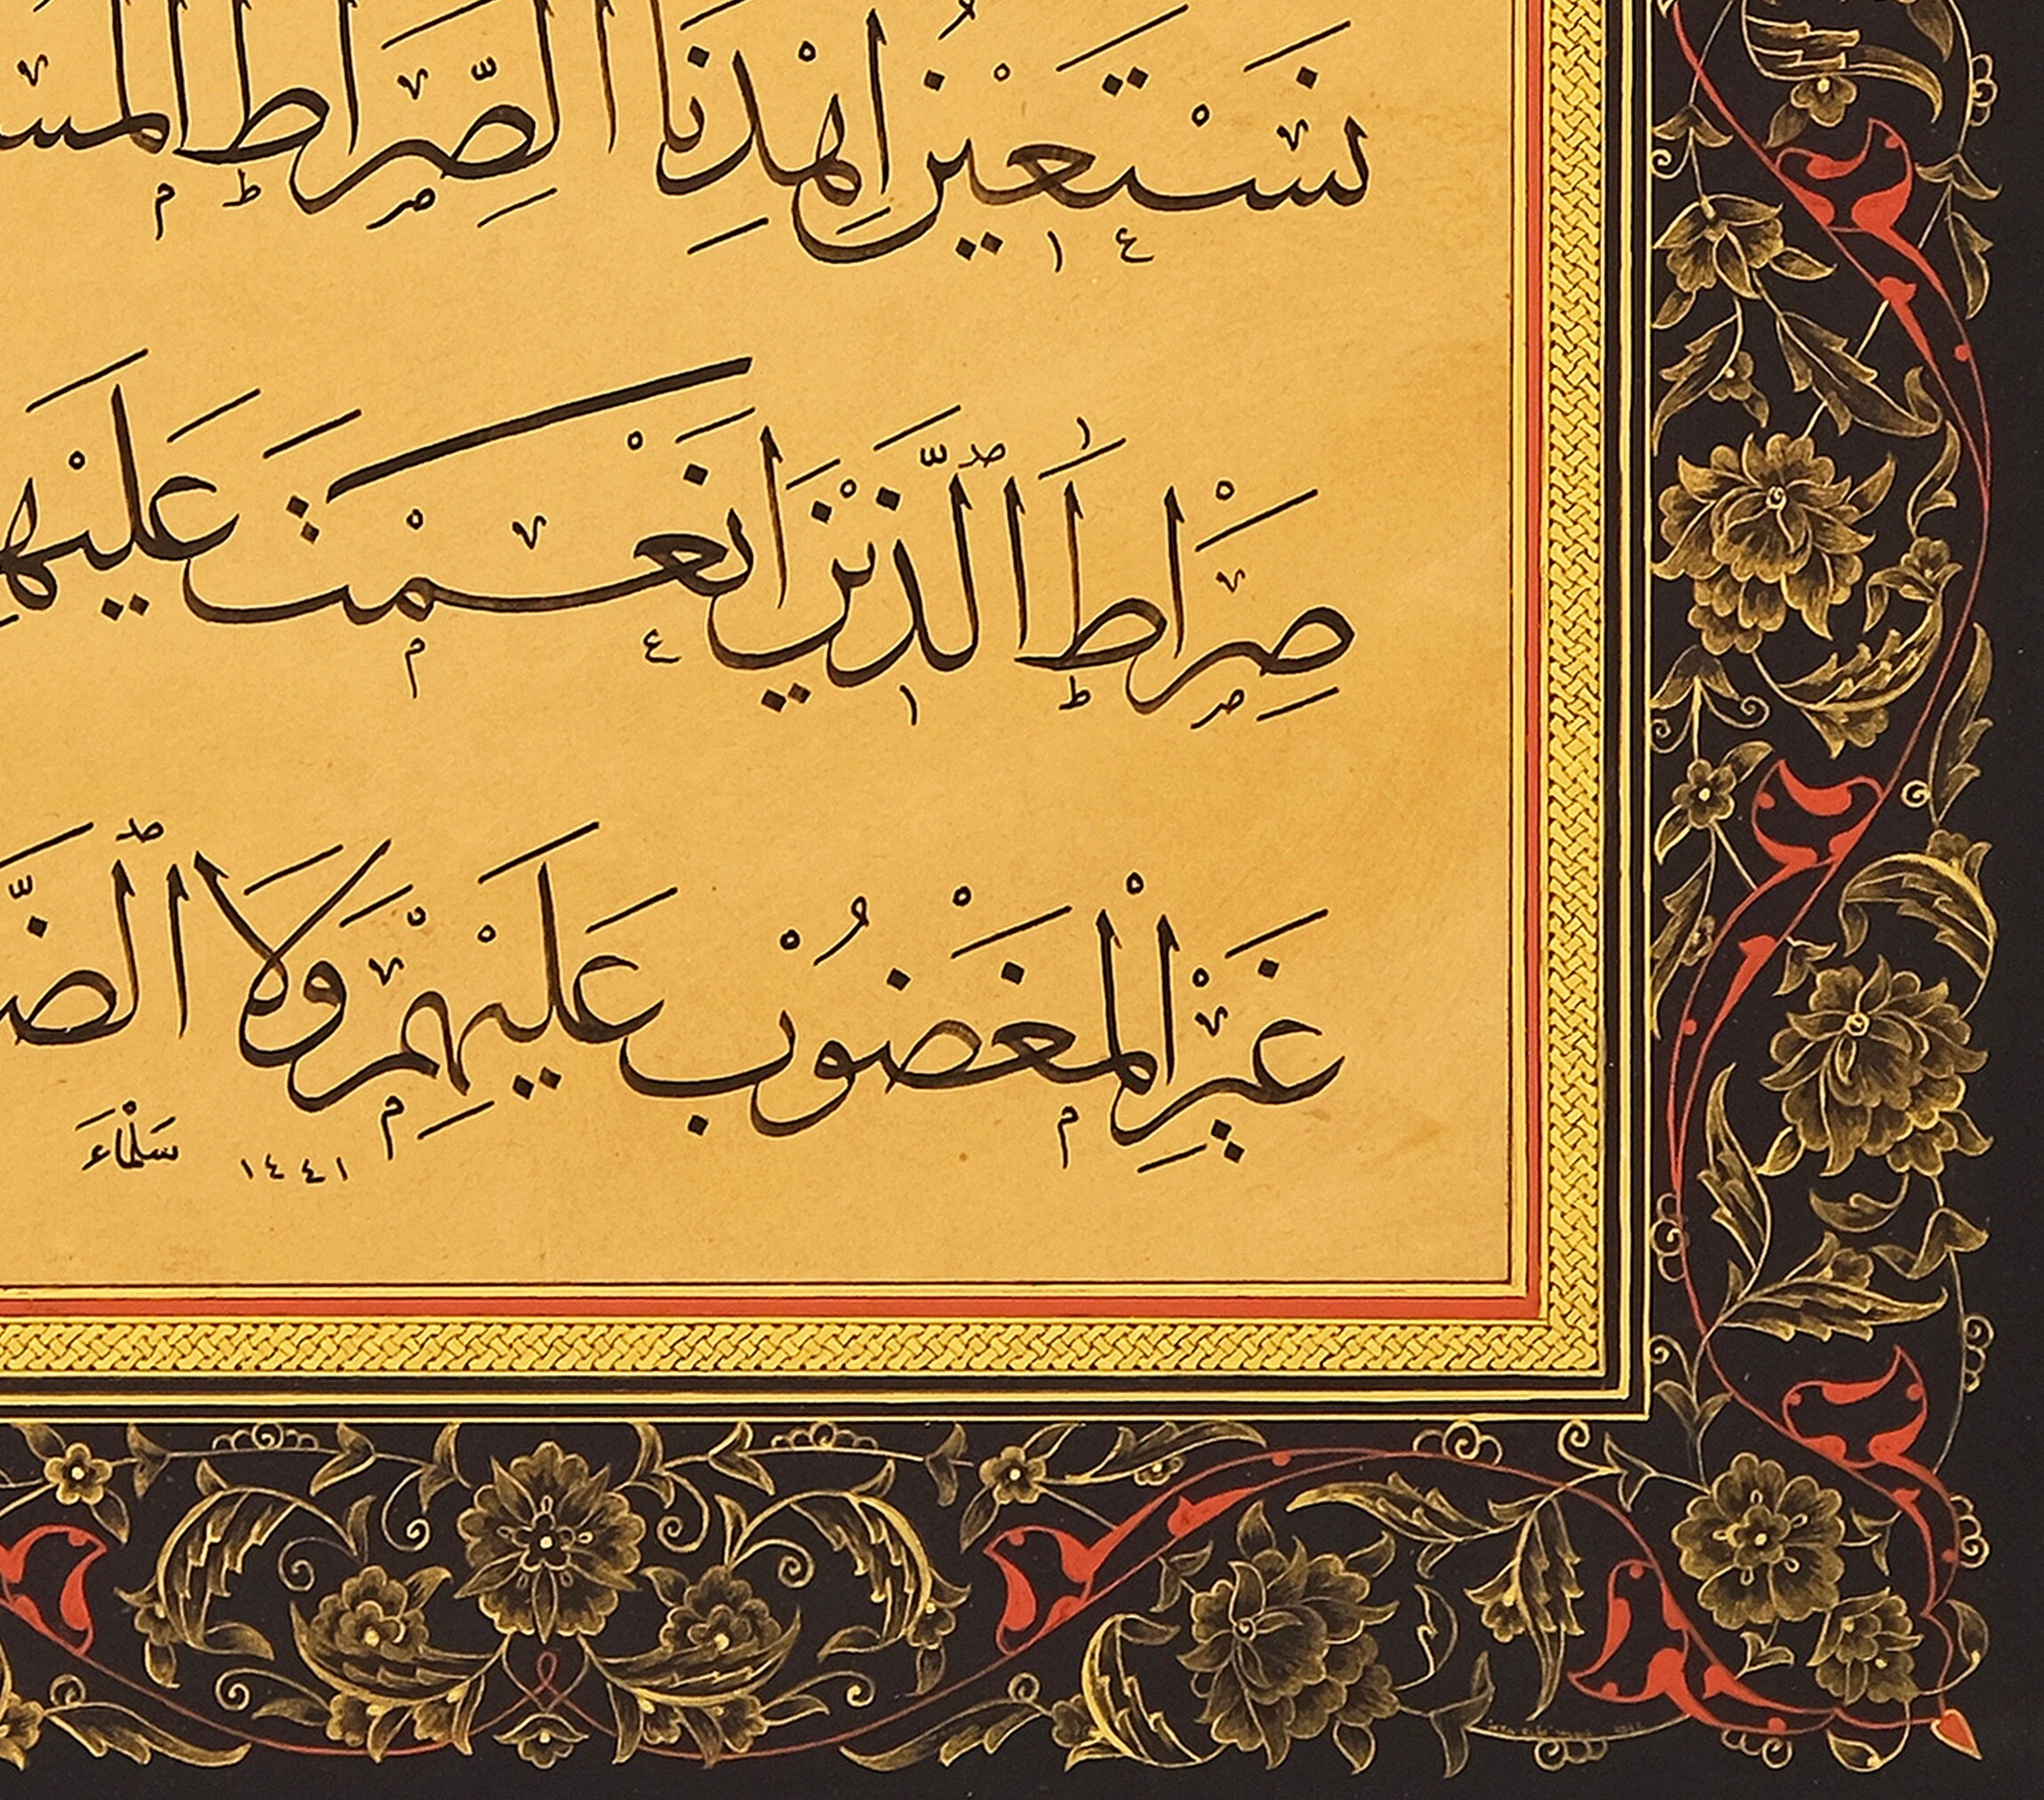 نَسْتَعِينُ اِهْدِنَا الصِّرَاطَ
صِرَاطَ الَّذِينَ اَنْعَمْتَ عَلَيْهِ
غَيْرِ الْمَغْضُوبِ عَلَيْهِمْ وَلَا
سَلْمَاءَ ١٤٤١